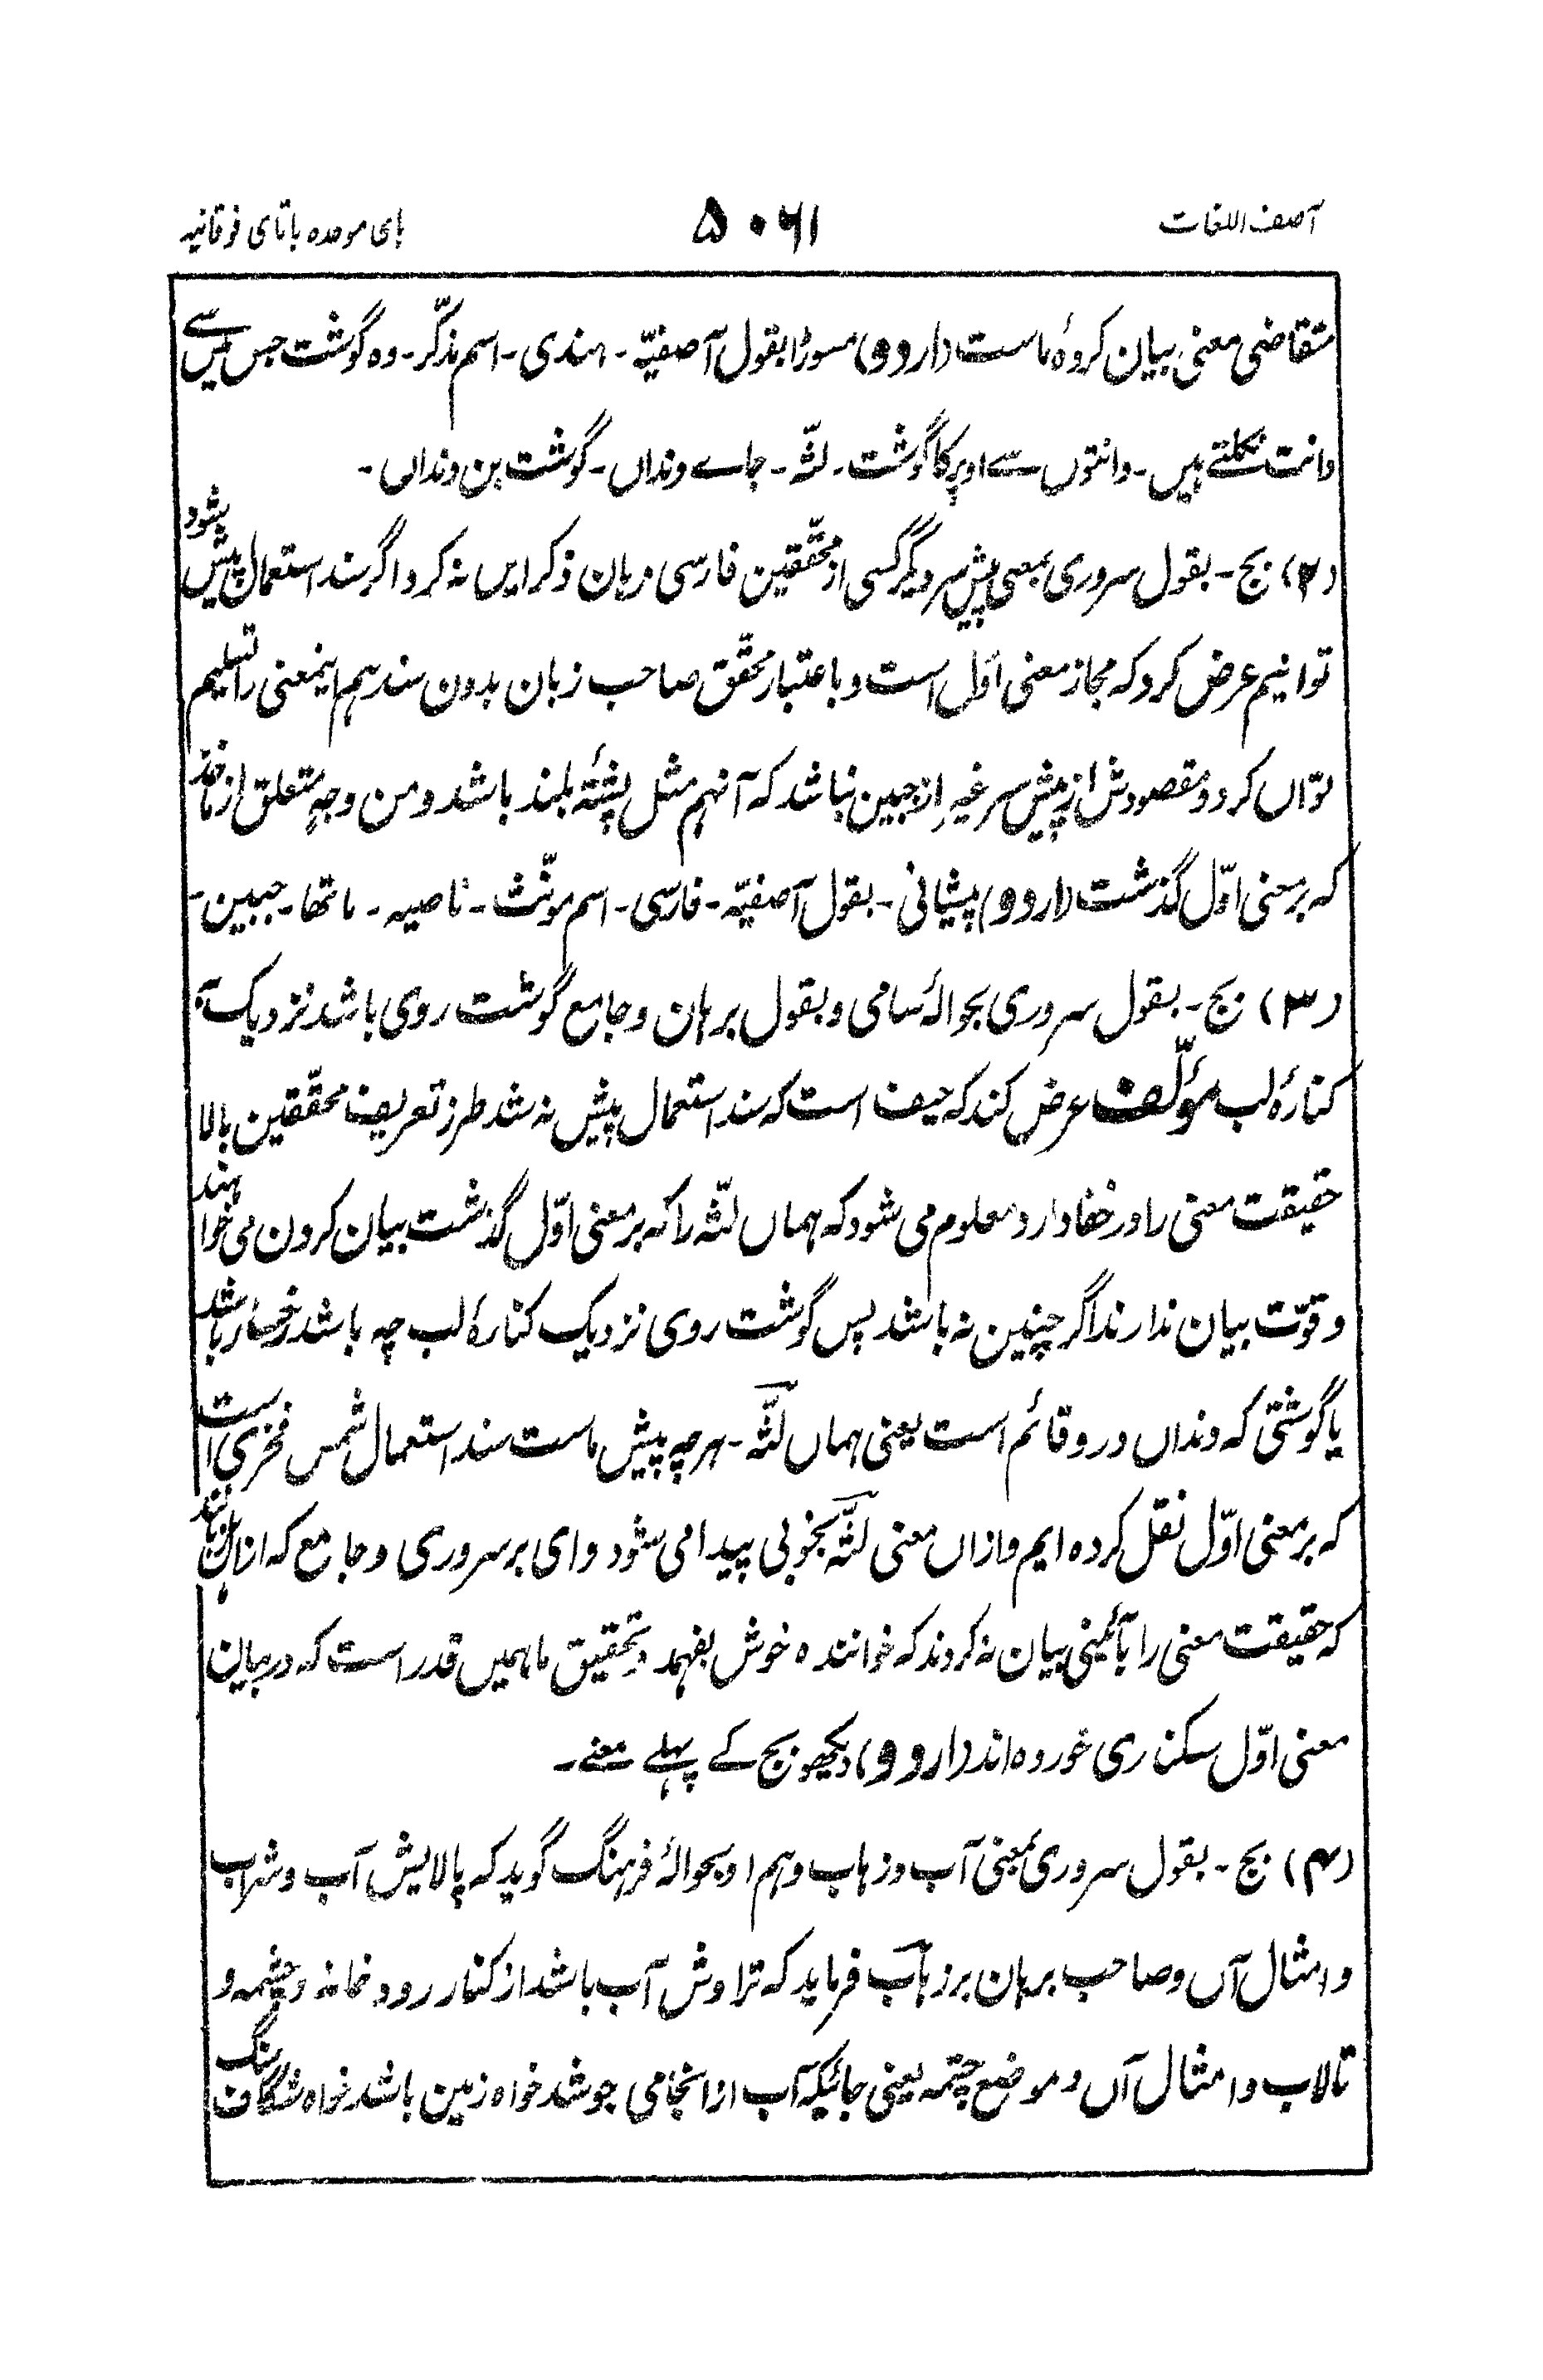 آصف اللغات
۵۰۶۱
بای موحده باتای فوقانیه
متقاضی معنی بیان کردهٔ ماست (اردو) مسوڑا بقول آصفیّہ ۔ ہندی ۔ اسم مذکّر ۔ وہ گوشت جس میں سے
دانت نکلتے ہیں ۔ دانتوں سے اوپر کا گوشت ۔ لثّہ ۔ جاے دنداں ۔ گوشت بن دنداں ۔
(۲) بج ۔ بقول سروری بمعنی پیش سر دیگر کسی از محقّقین فارسی زبان ذکر ایں نہ کرد اگر سند استعمال پیش شود
توانیم عرض کرد کہ مجاز معنی اوّل است و باعتبار محقّق صاحب زبان بدون سند ہم اینمعنی را تسلیم
تواں کرد و مقصودش از پیش سر غیر از جبین نباشد کہ آنہم مثل پشتۂ بلند باشد و من وجہٍ متعلق از ماخذ
کہ بر معنی اوّل گذشت (اردو) پیشانی ۔ بقول آصفیّہ ۔ فارسی ۔ اسم مونّث ۔ ناصیہ ۔ ماتھا ۔ جبین ۔
(۳) بج ۔ بقول سروری بحوالۂ سامی و بقول برہان و جامع گوشت روی باشد نزدیک بہ
کنارۂ لب مؤلّف عرض کند کہ حیف است کہ سند استعمال پیش نہ شد طرز تعریف محقّقین بالا
حقیقت معنی را در خفا دارد معلوم می شود کہ ہماں لثّہ را کہ بر معنی اوّل گذشت بیان کردن می خواہند
و قوّت بیان ندارند اگر چنین نہ باشد پس گوشت روی نزدیک کنارۂ لب چہ باشد رخسار باشد
یا گوشتی کہ دنداں درو قائم است یعنی ہماں لثّہ ۔ ہرچہ پیش ماست سند استعمال شمس فخری است
کہ بر معنی اوّل نقل کردہ ایم و ازاں معنی لثّہ بخوبی پیدا می شود وای بر سروری و جامع کہ از اہل زبانند
کہ حقیقت معنی را بآئینی بیان نہ کردند کہ خوانندہ خوش بفہمد و تحقیق ما ہمیں قدر است کہ در بیان
معنی اوّل سکندری خوردہ اند (اردو) دیکھو بج کے پہلے معنے ۔
(۴) بج ۔ بقول سروری بمعنی آب و زہاب و ہم او بحوالۂ فرہنگ گوید کہ پالایش آب و شراب
و امثال آں و صاحب برہان بر زہاب فرماید کہ تراوش آب باشد از کنار رودخانہ و چشمہ و
تالاب و امثال آں و موضع چشمہ یعنی جائیکہ آب از انجا می جوشد خواہ زمین باشد خواہ شگاف سنگ